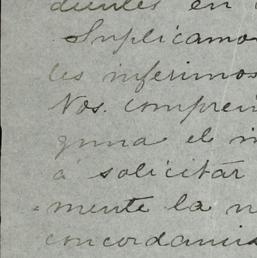 dientes en
Suplicamo
les inferimos
Nos. compren
guna el
á solicitar
mente la
concordancia